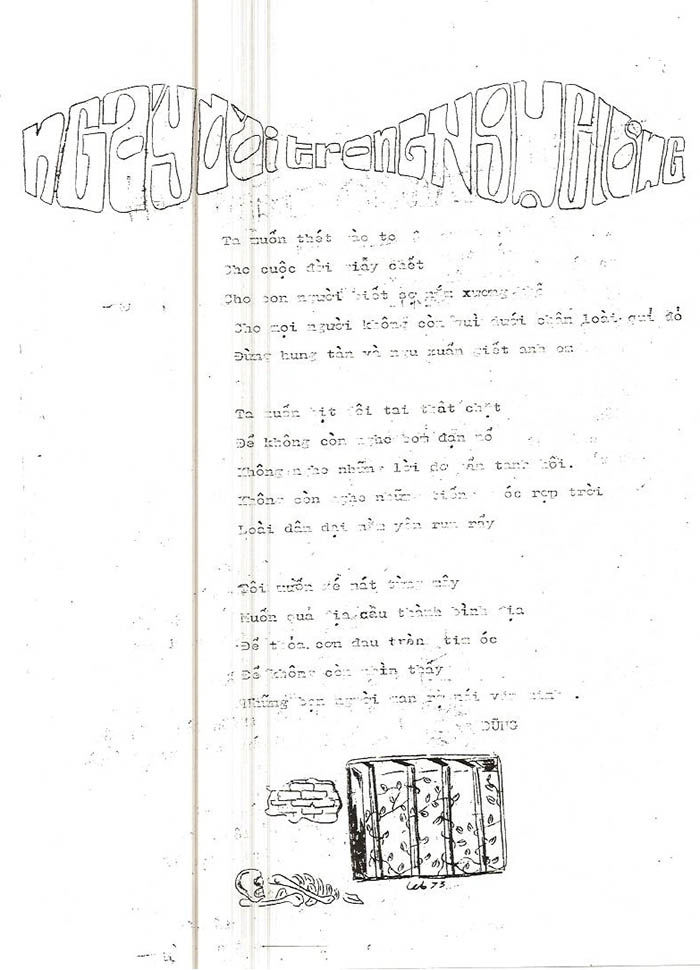 NGÀY DÀI TRONG NGỤC
Ta muốn thét to
Cho cuộc đời giẫy chết
Cho con người biết xương
Cho mọi người không còn dưới chân loài quỉ đỏ
Đừng hung tàn và ngu xuẩn giết anh em
Ta muốn bịt đôi tai thật chặt
Để không còn nghe bom đạn nổ
Không nghe những lời tanh hôi.
Không còn nghe những tiếng rợp trời
Loài dân dại nằm yên run rẩy
Tôi muốn xé nát từng mây
Muốn quả địa cầu thành bình địa
Để thỏa cơn đau trên tim óc
Để không còn nhìn thấy
Những bọn người man rợ nói văn minh.
DŨNG
73